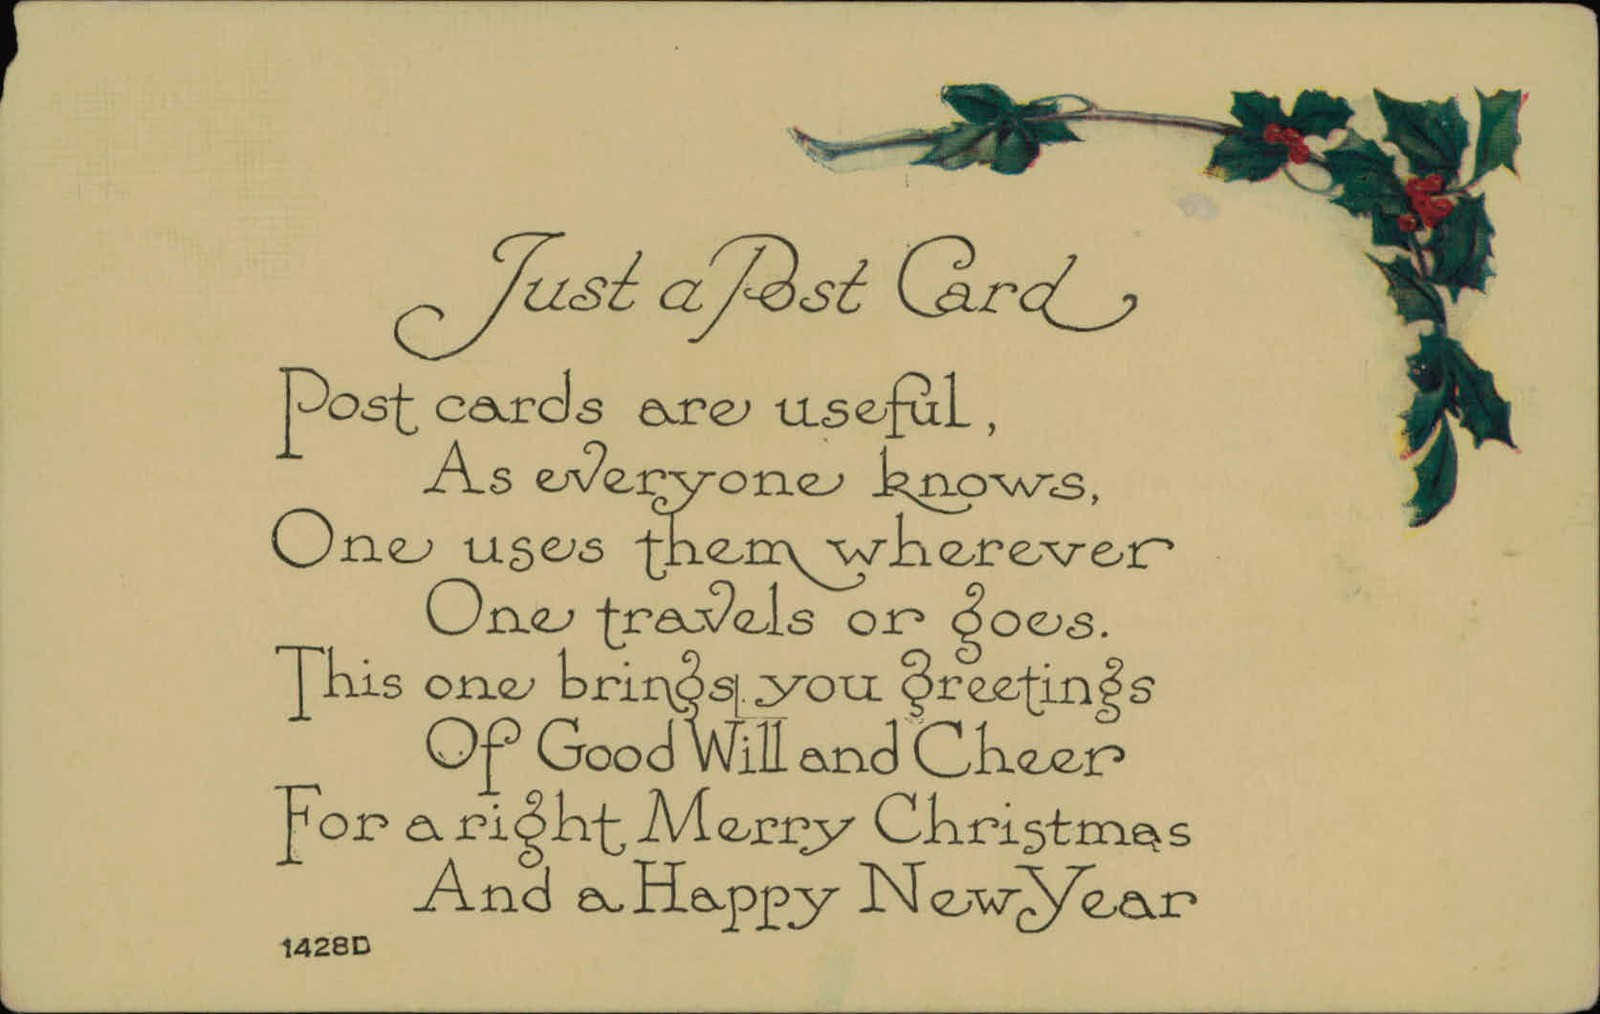 Just a Post Card
Post cards are useful,
As everyone knows,
One uses them wherever
One travels or goes.
This one brings you greetings
Of Good Will and Cheer
For a right Merry Christmas
And a Happy New Year
1428D